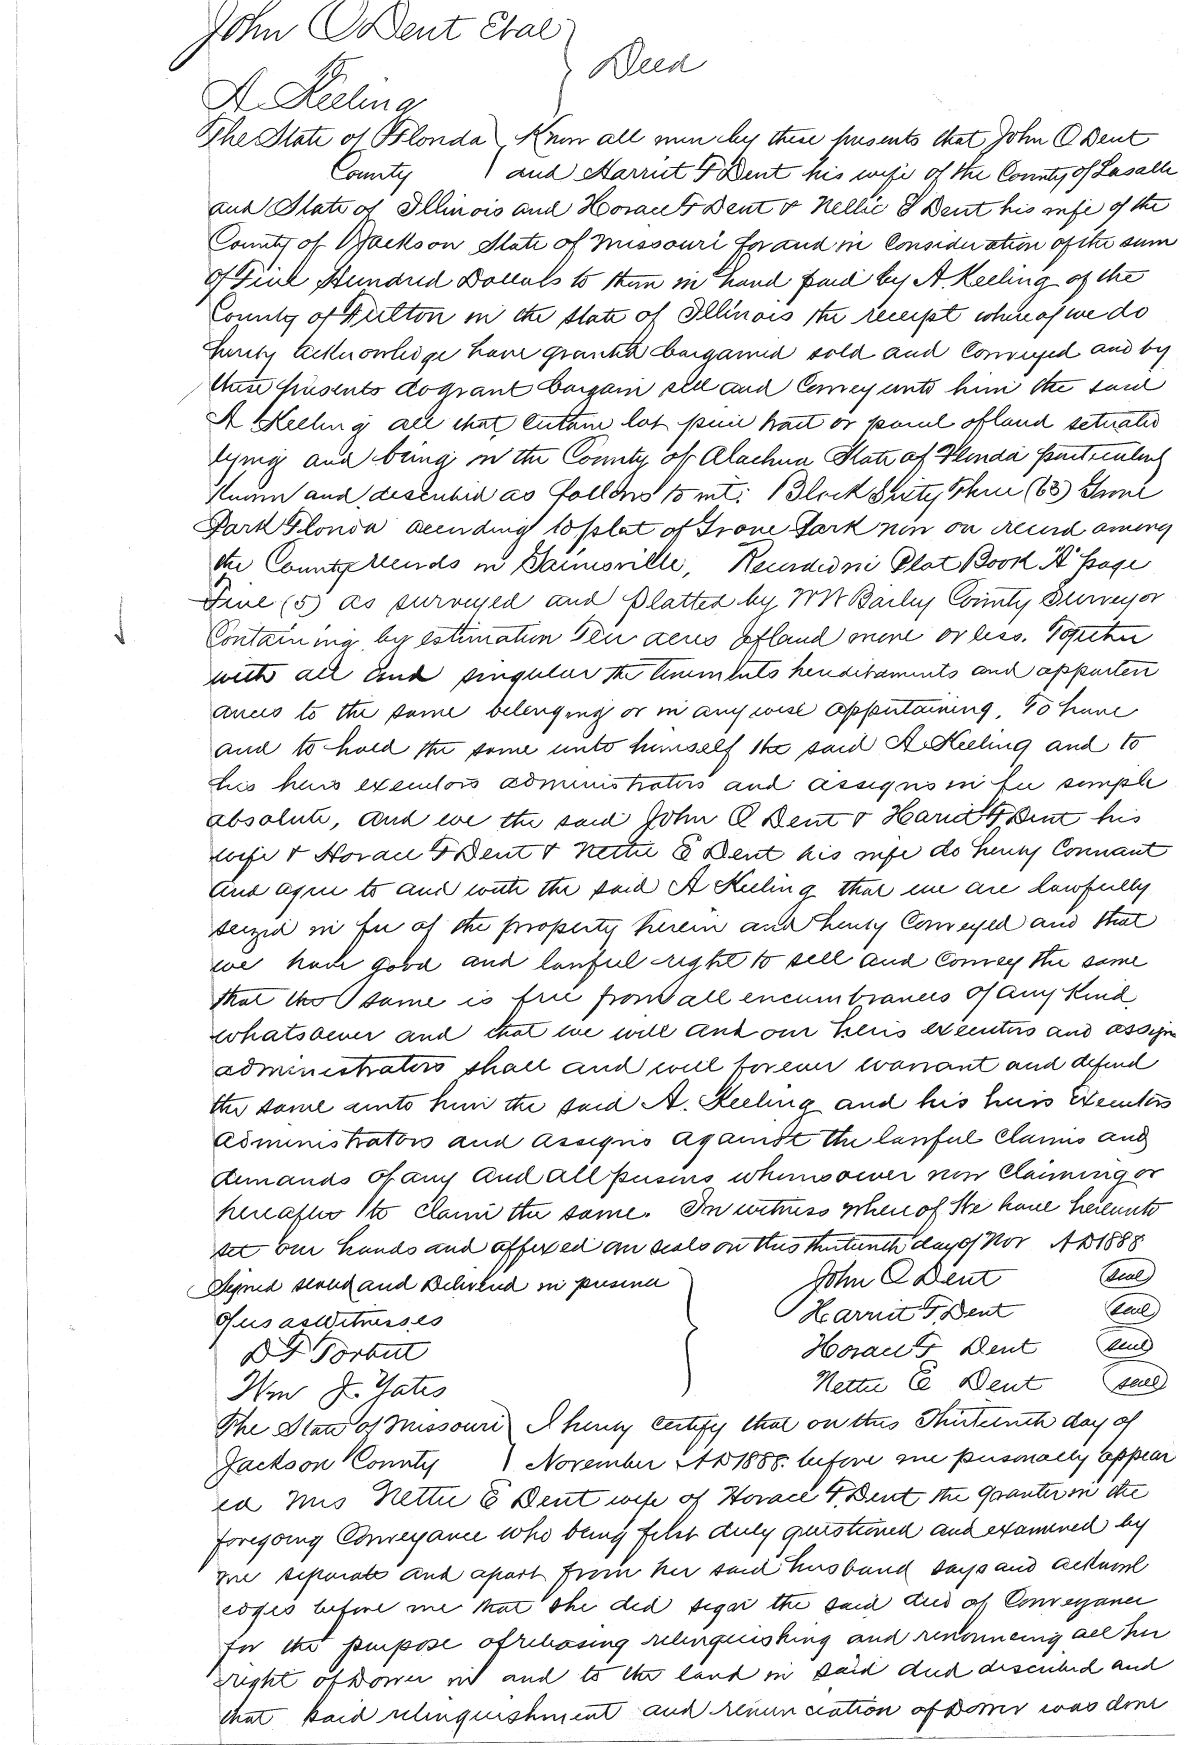 John O Dent Etal
Deed
to
A. Keeling
The State of Florida Know all men by these presents that John O Dent
County and Harriet F Dent his wife of the County of Lasalle
and State of Illinois and Horace F Dent & Nellie E Dent his wife of the
County of Jackson State of Missouri for and in Consideration of the sum
of Five Hundred Dollars to them in hand paid by A. Keeling of the
County of Fulton in the State of Illinois the receipt whereof we do
hereby acknowledge have granted bargained sold and Conveyed and by
these presents do grant bargain sell and Convey unto him the said
A Keeling all that certain lot piece tract or parcel of land situated
lying and being in the County of Alachua State of Florida particularly
Known and described as follows to wit: Block Sixty Three (63) Grove
Park Florida according to plat of Grove Park now on record among
the County Records in Gainesville, Recorded in Plat Book "A" page
Five (5) as surveyed and platted by W W Bailey County Surveyor
Containing by estimation Ten acres of land more or less. Together
with all and singular the tenements hereditaments and apperten
ances to the same belonging or in any wise appertaining, To have
and to hold the same unto himself the said A Keeling and to
his heirs executors administrators and assigns in fee simple
absolute, and we the said John O Dent & Harriet F Dent his
wife & Horace F Dent & Nettie E Dent his wife do hereby Covenant
and agree to and with the said A Keeling that we are lawfully
seized in fee of the property herein and hereby Conveyed and that
we have good and lawful right to sell and Convey the same
that the same is free from all encumbrances of any Kind
whatsoever and that we will and our heirs executors and assigns
administrators shall and will forever warrant and defend
the same unto him the said A. Keeling and his heirs Executors
administrators and assigns against the lawful claims and
demands of any and all persons whomsoever now claiming or
hereafter to claim the same. In witness whereof We have hereunto
set our hands and affixed our seals on this thirteenth day of Nov AD1888
Signed sealed and Delivered in presence John O Dent (seal)
of us as Witnesses Harriet F. Dent (seal)
D F Torbert Horace F Dent (seal)
Wm J. Yates Nettie E Dent (seal)
The State of Missouri I hereby certify that on this Thirteenth day of
Jackson County November AD1888. before me personally appear
ed Mrs Nettie E Dent wife of Horace F. Dent the grantor in the
foregoing Conveyance who being first duly questioned and examined by
me separate and apart from her said husband says and acknowl
edges before me that she did sign the said deed of Conveyance
for the purpose of releasing relinquishing and renouncing all her
right of Dower in and to the land in said deed described and
that said relinquishment and renunciation of Dower was done